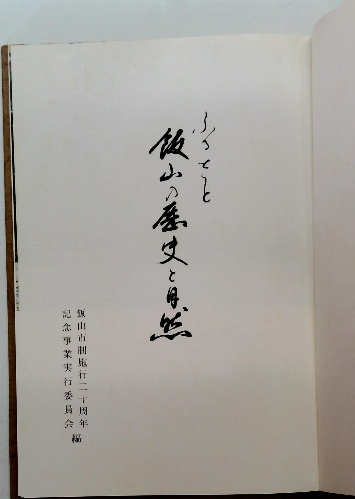 ふるさと
飯山の歴史と自然
飯山市制施行二十周年
記念事業実行委員会 編